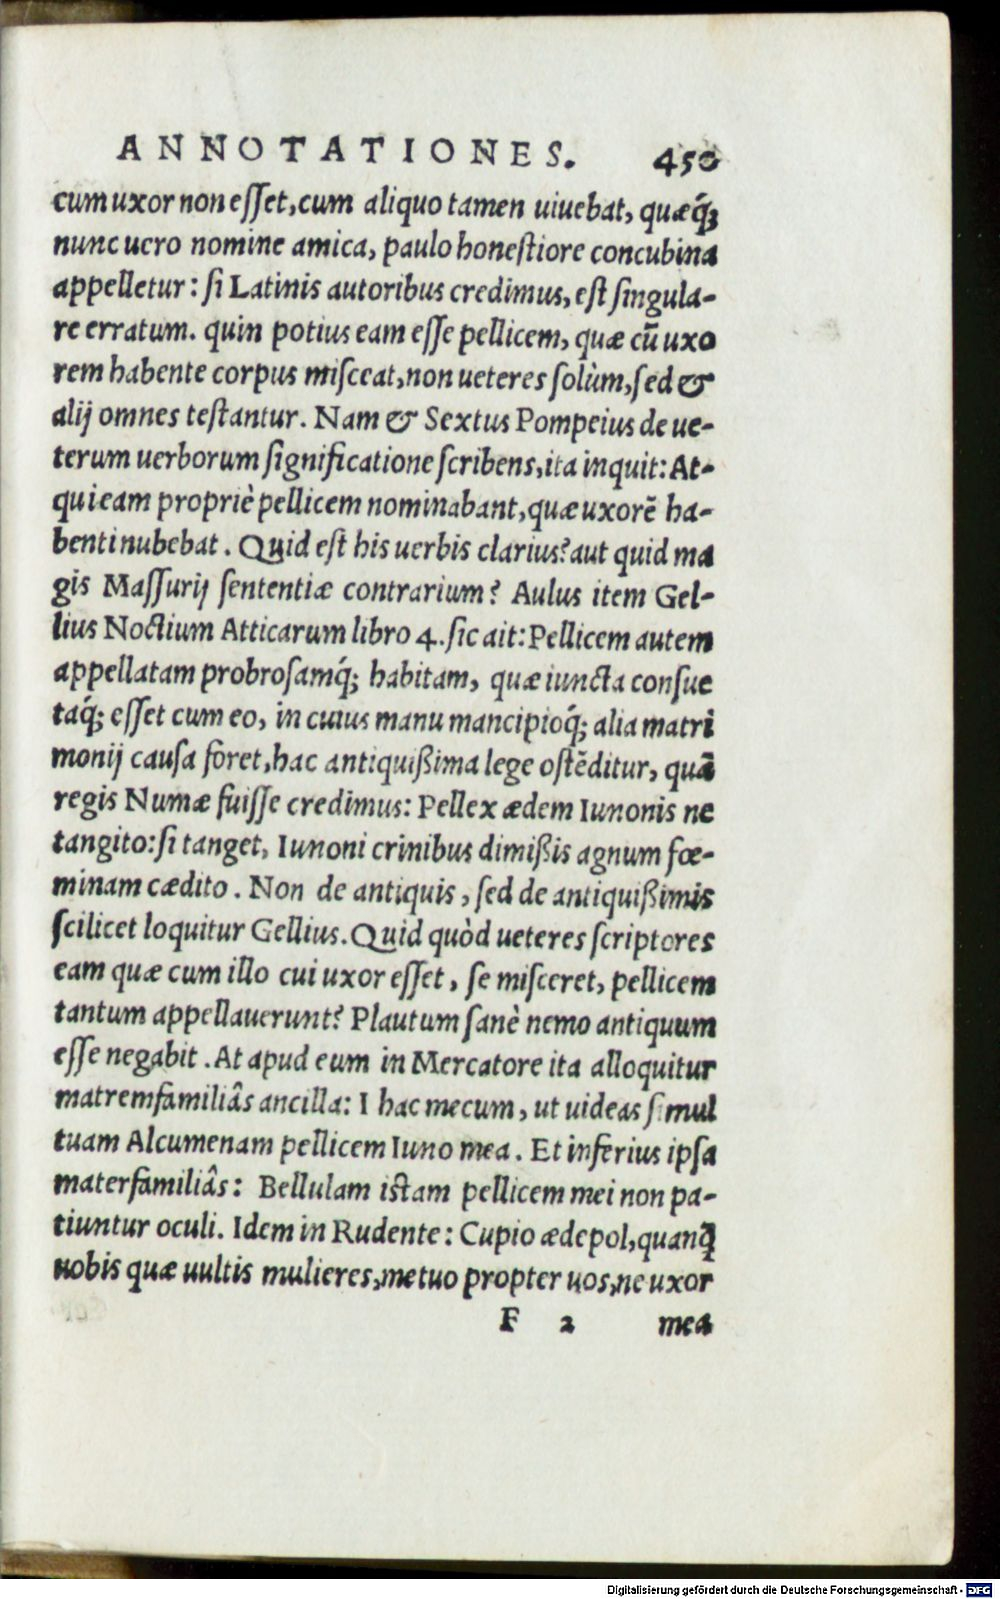 ANNOTATIONES. 450
cum uxor non eſſet, cum aliquo tamen uiuebat, quæq́;
nunc uero nomine amica, paulo honeſtiore concubina
appelletur: ſi Latinis autoribus credimus, eſt ſingula-
re erratum. quin potius eam eſſe pellicem, quæ cū uxo
rem habente corpus miſceat, non ueteres ſolùm, ſed &
alij omnes teſtantur. Nam & Sextus Pompeius de ue-
terum uerborum ſignificatione ſcribens, ita inquit: At-
qui eam propriè pellicem nominabant, quæ uxorē ha-
benti nubebat. Quid eſt his uerbis clarius? aut quid ma
gis Maſſurij ſententiæ contrarium? Aulus item Gel-
lius Noctium Atticarum libro 4. ſic ait: Pellicem autem
appellatam probroſamq́; habitam, quæ iuncta conſue
taq́; eſſet cum eo, in cuius manu mancipioq́; alia matri
monij cauſa foret, hac antiquißima lege oſtēditur, quā
regis Numæ fuiſſe credimus: Pellex ædem Iunonis ne
tangito: ſi tanget, Iunoni crinibus dimißis agnum fœ-
minam cædito. Non de antiquis, ſed de antiquißimis
ſcilicet loquitur Gellius. Quid quòd ueteres ſcriptores
eam quæ cum illo cui uxor eſſet, ſe miſceret, pellicem
tantum appellauerunt? Plautum ſanè nemo antiquum
eſſe negabit. At apud eum in Mercatore ita alloquitur
matremfamiliâs ancilla: I hac mecum, ut uideas ſimul
tuam Alcumenam pellicem Iuno mea. Et inferius ipſa
materfamiliâs: Bellulam iſtam pellicem mei non pa-
tiuntur oculi. Idem in Rudente: Cupio ædepol, quanq̃
uobis quæ uultis mulieres, metuo propter uos, ne uxor
F 2 mea
Digitalisierung gefördert durch die Deutsche Forschungsgemeinschaft - DFG